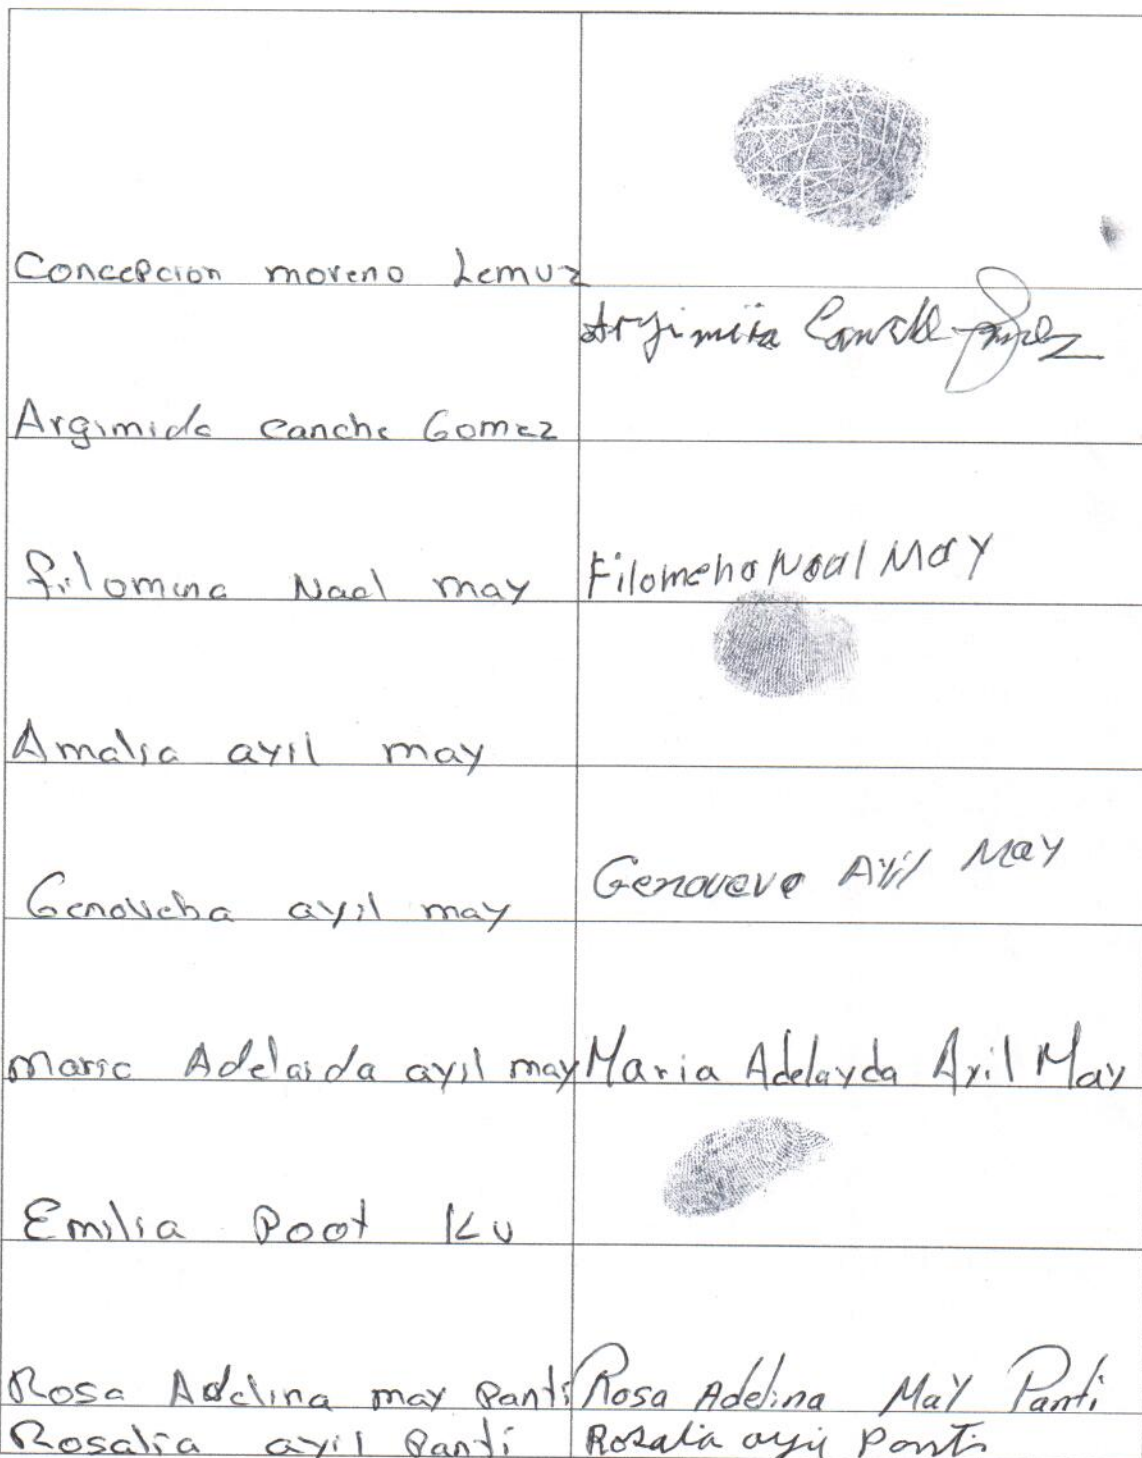 Concepcion moreno Lemuz
Argimida canche Gomez
Filomena Naal may
Filomena Naal May
Amalia ayil may
Genoveba ayil may
Genoveva Ayil May
Maria Adelaida ayil may
Maria Adelayda Ayil May
Emilia Poot Ku
Rosa Adelina may Panti
Rosa Adelina May Panti
Rosalia ayil Panti
Rosalia ayil Panti